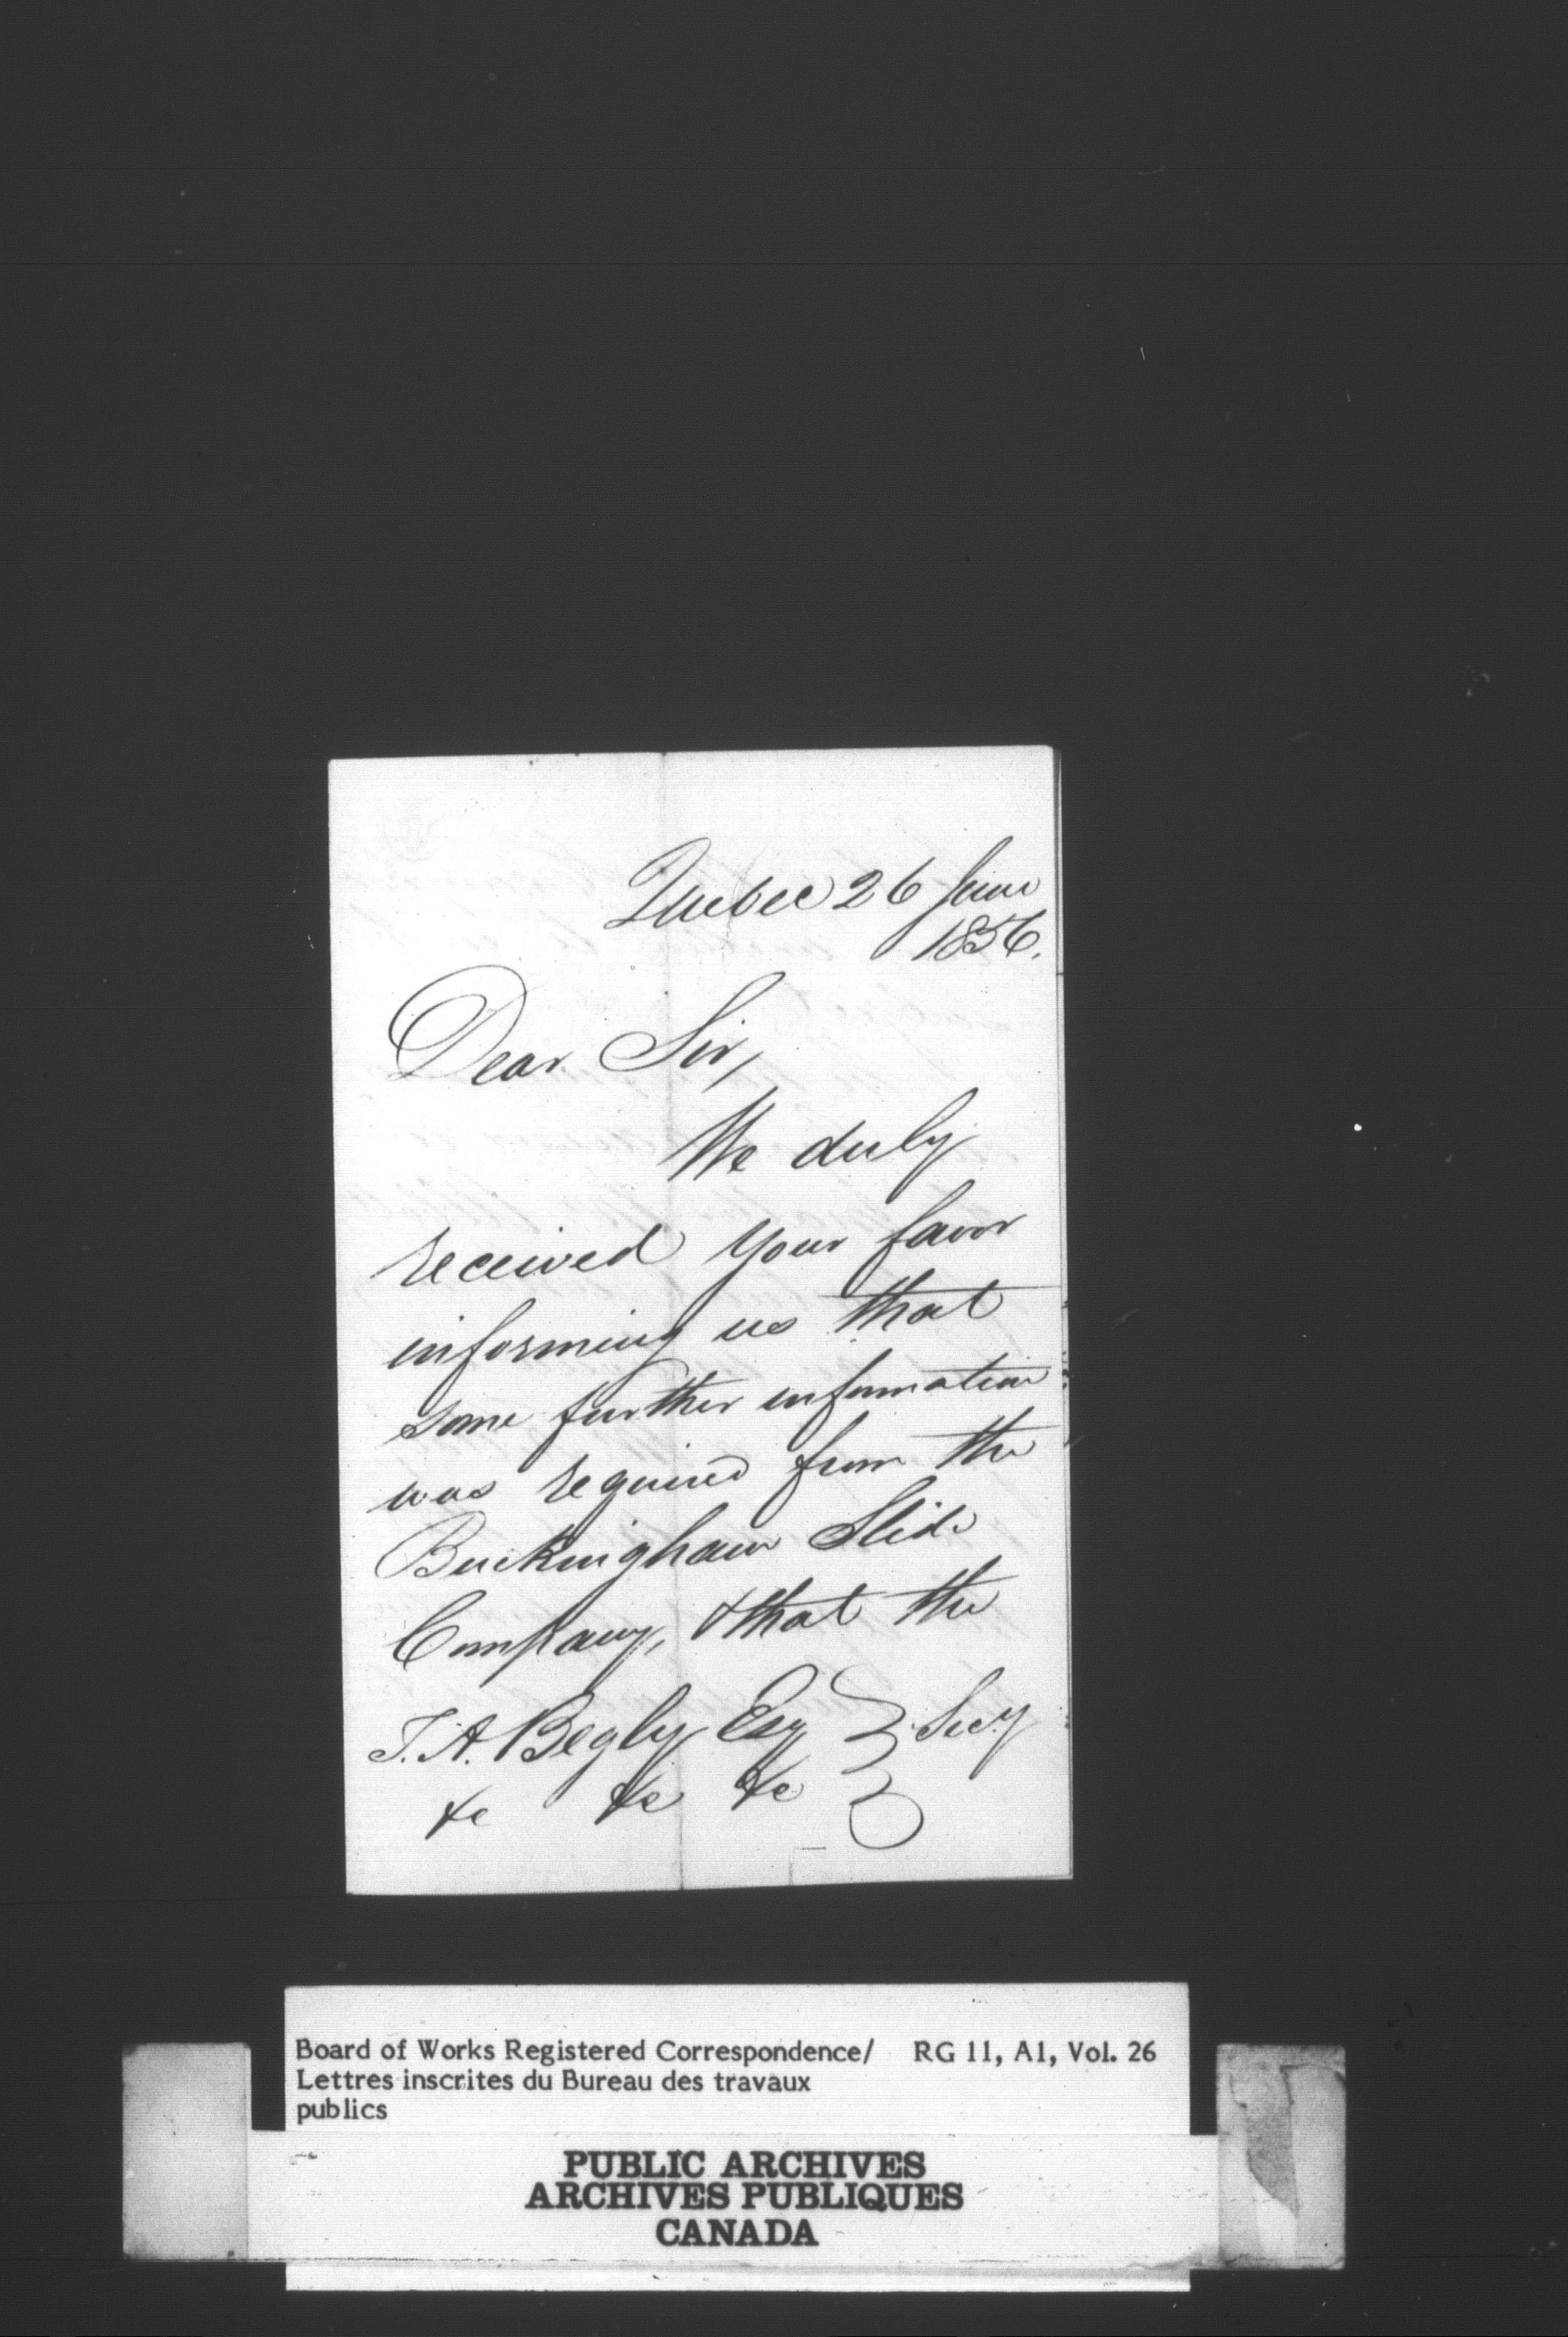 Quebec 26 June
1856.
Dear Sir,
We duly
received your favor
informing us that
some further information
was required from the
Buckingham Slide
Company, & that the
T. A. Begly Esq Secy
&c &c &c
Board of Works Registered Correspondence/ RG 11, A1, Vol. 26
Lettres inscrites du Bureau des travaux
publics
PUBLIC ARCHIVES
ARCHIVES PUBLIQUES
CANADA